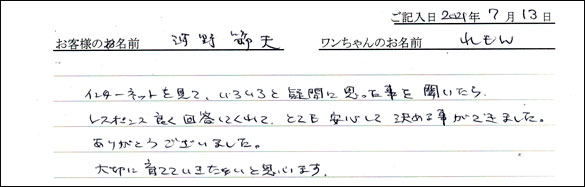 ご記入日 2021年 7月 13日
お客様のお名前 河野 節夫 ワンちゃんのお名前 れもん
インターネットを見て、いろいろと疑問に思った事を聞いたら
レスポンス良く回答してくれて、とても安心して決める事ができました。
ありがとうございました。
大切に育てていきたいと思います。